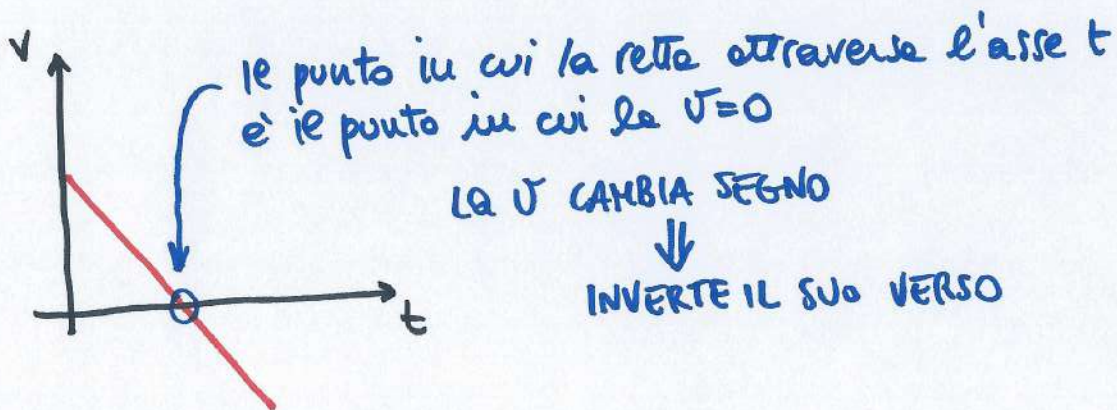 V
il punto in cui la retta attraversa l'asse t
è il punto in cui la v=0
LA v CAMBIA SEGNO
⇓
INVERTE IL SUO VERSO
t